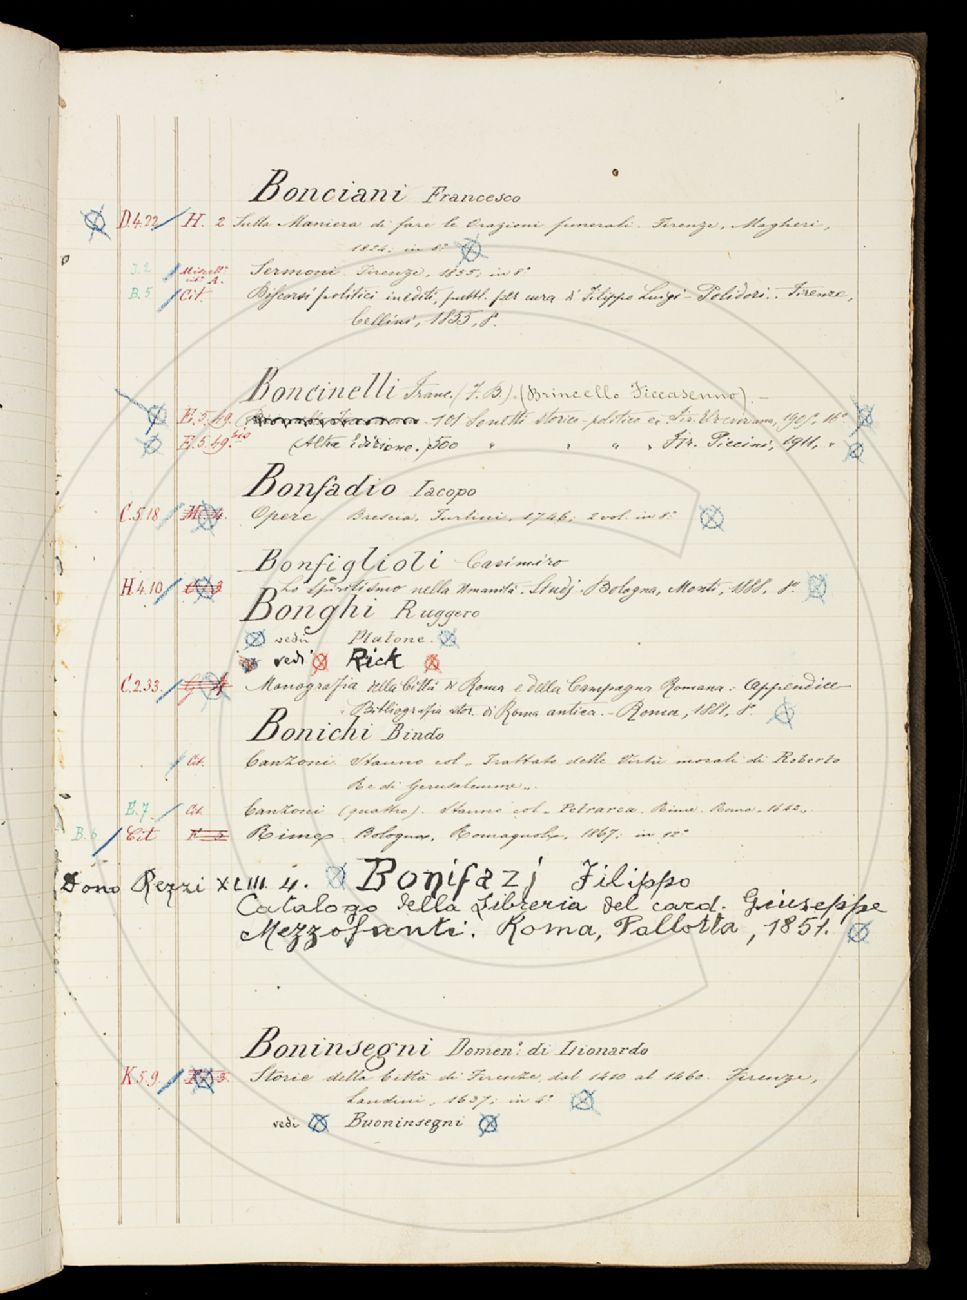 Bonciani Francesco
D.4.22 H. 2 Sulla Maniera di fare le Orazioni funerali. Firenze, Magheri,
1824; in 8°
J.2 Miscell. A. Sermoni. Firenze, 1855, in 8°
B.5 Cit. Discorsi politici inediti, pubbl. per cura di Filippo Luigi Polidori. Firenze,
Cellini, 1855, 8°.
Boncinelli Franc. (F. B.). (Brincello Ficcasenno). –
E.5.49. 101 Sonetti storico-politico Fir. 1905, 16°
E.5.49 bis (Altra Edizione. 500 " " " " Fir. Piccini, 1911, "
Bonfadio Iacopo
C.5.18 Opere Brescia, Turlini, 1746; 2 vol. in 8°
Bonfiglioli Casimiro
H.4.10 Lo spiritismo nella Umanità. Studj. Bologna, Monti, 1888, 8°.
Bonghi Ruggero
vedi Platone.
vedi Rick
C.2.33. Monografia della Città di Roma e della Campagna Romana: Appendice
Bibliografia stor. di Roma antica. – Roma, 1881, 8°.
Bonichi Bindo
Cit. Canzoni Stanno col „ Trattato delle Virtù morali di Roberto
Re di Gerusalemme „.
E.7. Cit. Canzoni (quattro). Stanno col „ Petrarca. Rime. Roma. 1642„
B.6 Cit Rime. Bologna, Romagnoli, 1867; in 12°
Dono Rezzi XLIII. 4. Bonifazj Filippo
Catalogo della Libreria del card. Giuseppe
Mezzofanti. Roma, Pallotta, 1851.
Boninsegni Domen.° di Lionardo
K.5.9. Storie della Città di Firenze, dal 1410 al 1460. Firenze,
Landini, 1637; in 4°
vedi Buoninsegni